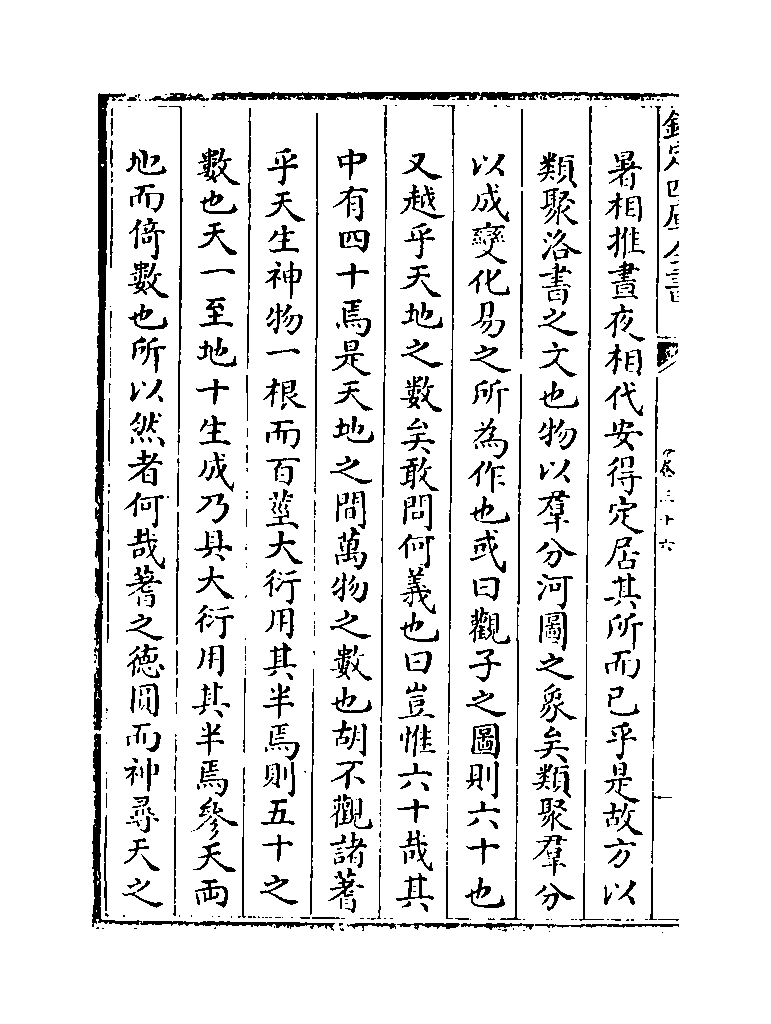 欽定四庫全書
卷三十六
暑相推晝夜相代安得定居其所而已乎是故方以
類聚洛書之文也物以羣分河圖之象矣類聚羣分
以成變化易之所為作也或曰觀子之圖則六十也
又越乎天地之數矣敢問何義也曰豈惟六十哉其
中有四十焉是天地之間萬物之數也胡不觀諸蓍
乎天生神物一根而百莖大衍用其半焉則五十之
數也天一至地十生成乃具大衍用其半焉參天兩
地而倚數也所以然者何哉蓍之德圓而神尋天之